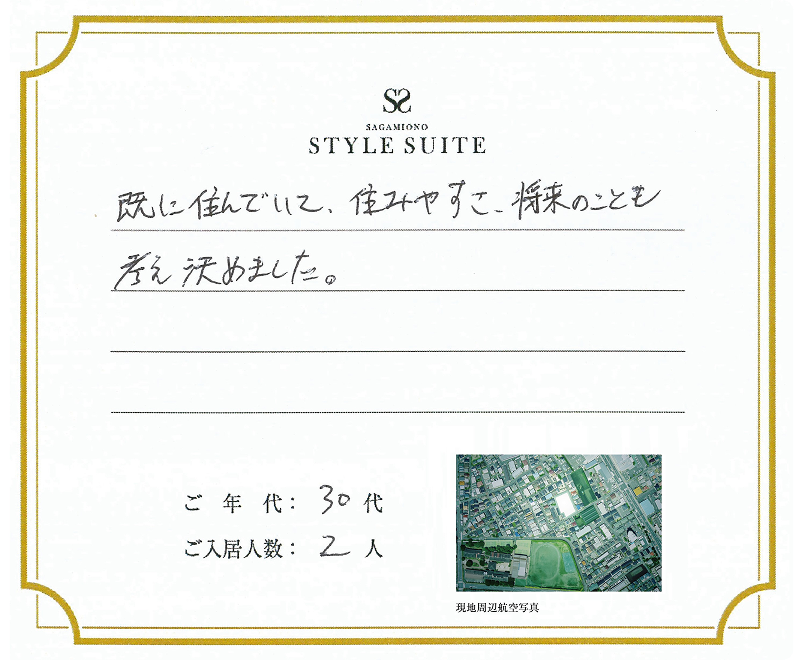 SS
SAGAMIONO
STYLE SUITE
既に住んでいて、住みやすさ、将来のことも
考え決めました。
ご年代：30代
ご入居人数：2人
現地周辺航空写真